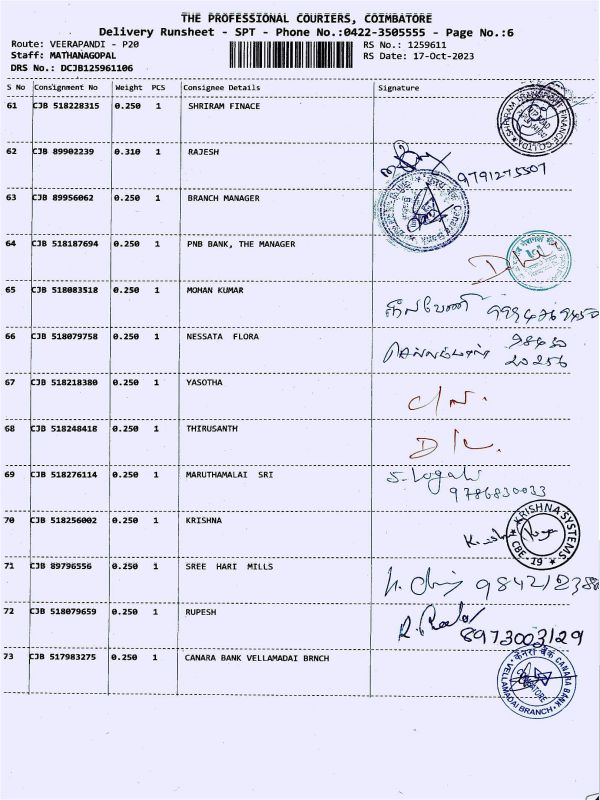 THE PROFESSIONAL COURIERS, COIMBATORE
Delivery Runsheet - SPT - Phone No.:0422-3505555 - Page No.:6
Route: VEERAPANDI - P20 RS No.: 1259611
Staff: MATHANAGOPAL RS Date: 17-Oct-2023
DRS No.: DCJB125961106
S No Consignment No Weight PCS Consignee Details Signature
61 CJB 518228315 0.250 1 SHRIRAM FINACE
62 CJB 89902239 0.310 1 RAJESH 9791275507
63 CJB 89956062 0.250 1 BRANCH MANAGER
64 CJB 518187694 0.250 1 PNB BANK, THE MANAGER
65 CJB 518083518 0.250 1 MOHAN KUMAR
66 CJB 518079758 0.250 1 NESSATA FLORA 98430
20256
67 CJB 518218380 0.250 1 YASOTHA
68 CJB 518248418 0.250 1 THIRUSANTH
69 CJB 518276114 0.250 1 MARUTHAMALAI SRI S. Logali
9786830033
70 CJB 518256002 0.250 1 KRISHNA KRISHNA SYSTEMS CBE - 19
71 CJB 89796556 0.250 1 SREE HARI MILLS
72 CJB 518079659 0.250 1 RUPESH 8973003129
73 CJB 517983275 0.250 1 CANARA BANK VELLAMADAI BRNCH केनरा बैंक CANARA BANK VELLAMADAI BRANCH